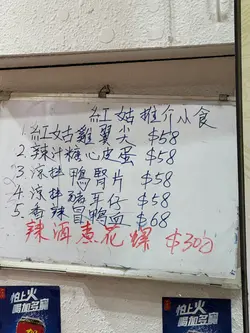 紅姑推介小食
1.紅姑雞翼尖 $58
2.辣汁糖心皮蛋 $58
3.涼拌鴨腎片 $58
4.涼拌豬耳仔 $58
5.香辣冒鴨血 $68
辣酒煮花螺 $300
怕上火
喝加多寶
怕上火
喝加多寶